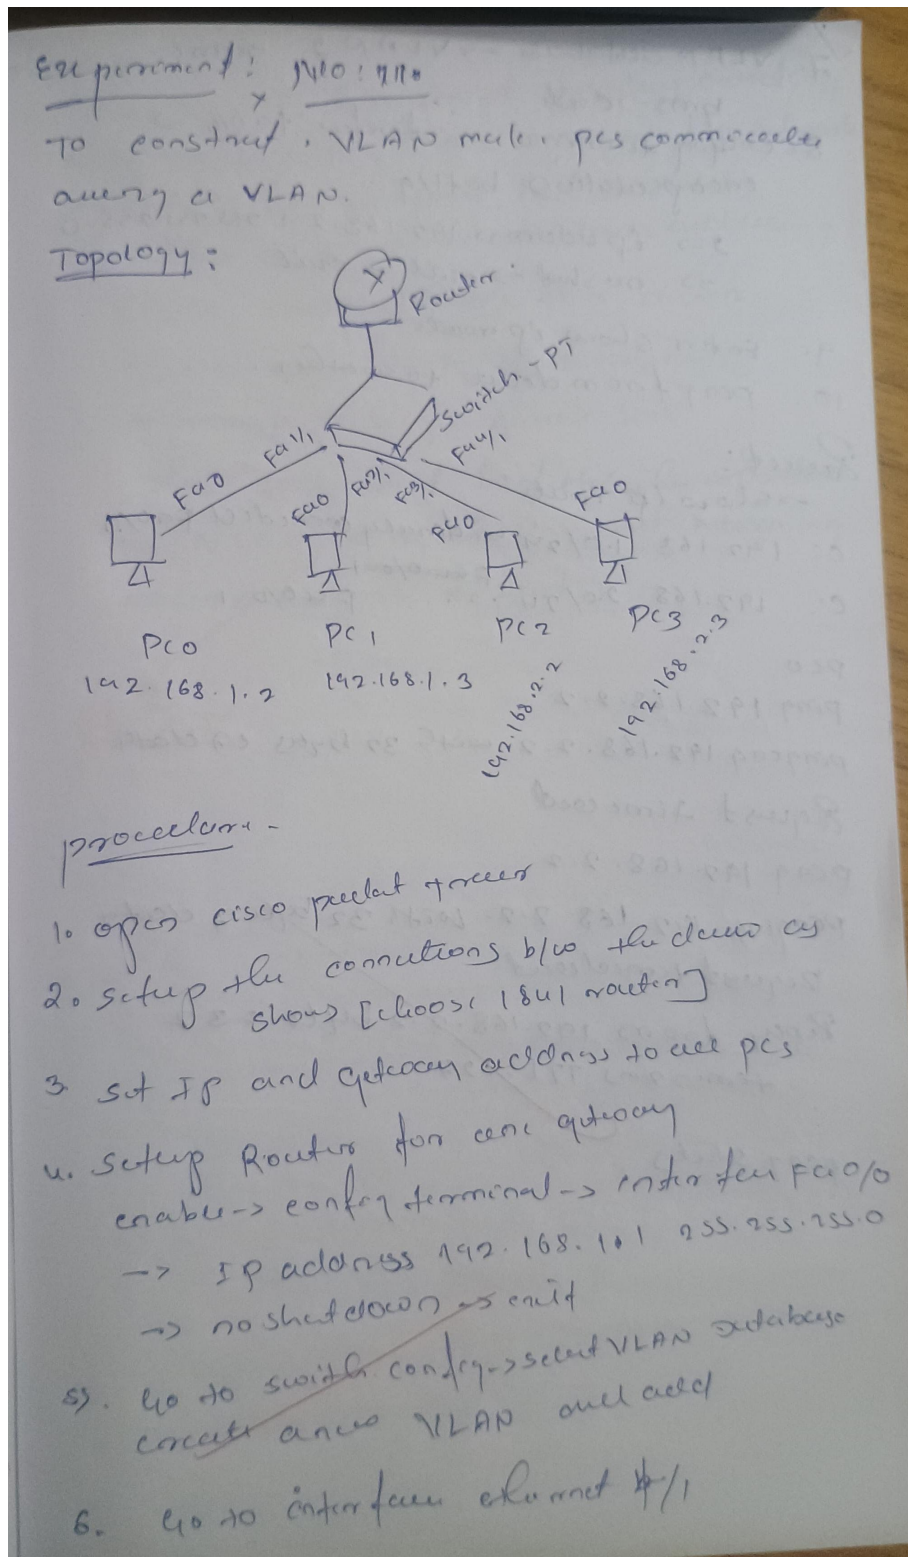 Experiment: No:
To construct. VLAN make. pcs communicate
among a VLAN.
Topology:
Router
Switch-PT
Fa1/1
Fa2/1
Fa3/1
Fa4/1
Fa0
Fa0
Fa0
Fa0
PC0
PC1
PC2
PC3
192.168.1.2
192.168.1.3
192.168.2.2
192.168.2.3
procedure-
1. open cisco packet tracer
2. setup the connections b/w the as
shows [choose 1841 router]
3. set IP and gateway address to all pcs
4. Setup Router for gateway
enable -> config terminal -> interface Fa0/0
-> IP address 192.168.1.1 255.255.255.0
-> no shutdown -> exit
5). Go to switch config -> select VLAN database
create a new VLAN and add
6. Go to interface /1